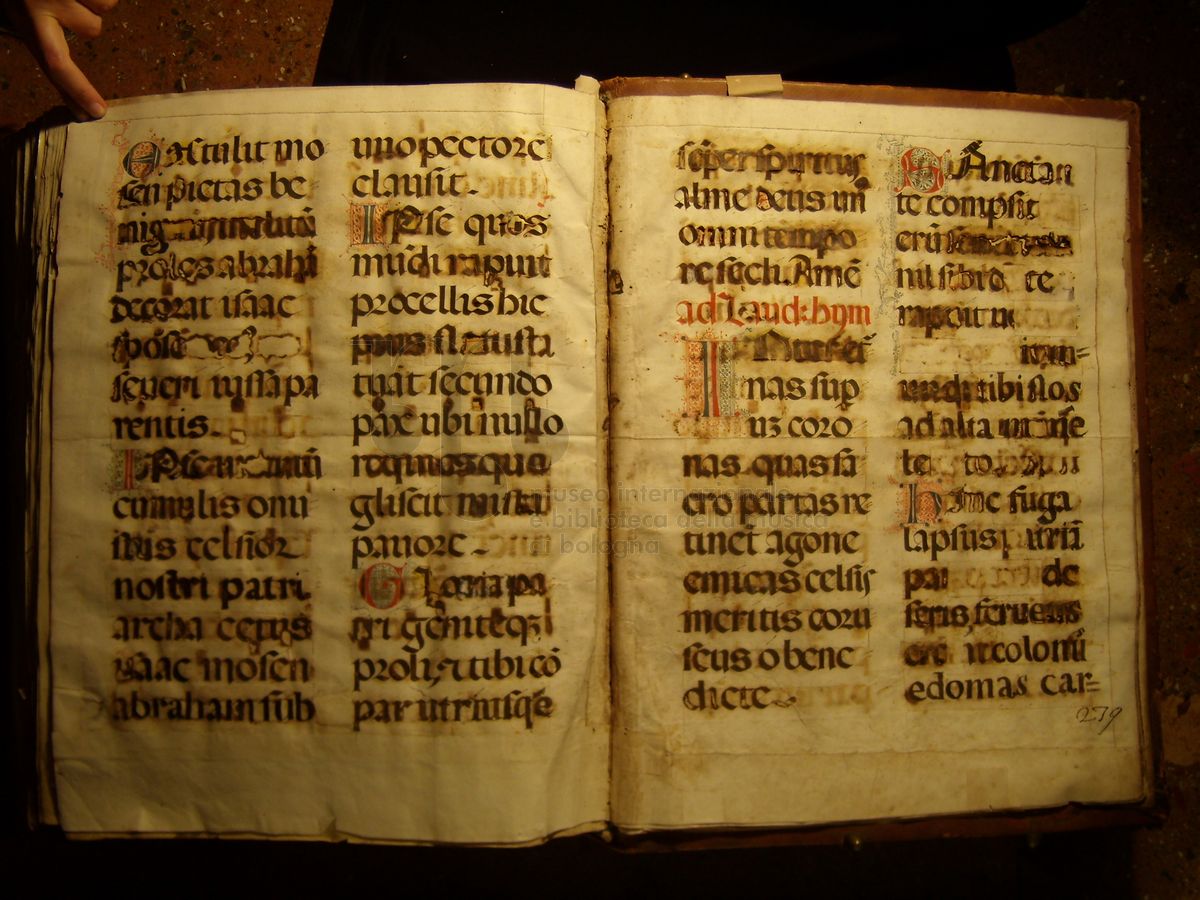 Extulit mo
sen pietas be
nig
proles abrahã
decorat isaac
spõse
seueri iussa pa
rentis.
IPse
cumulis oni
stus celsior
nostri patri
archa cetus
isaac mosen
abraham sub
uno pectore
clausit.
IPse quos
mũdi rapuit
procellis hic
pius fla tu sta
tuat secundo
pax ubi nullo
requiesque
gliscit mista
pauore.
Gloria pa
tri geniteqz
proli, et tibi cõ
par utriusqe
sẽper spiritus
alme deus un
omni tempo
re secli. Amẽ
ad Laud: hym
INter eter
nas sup
uz coro
nas quas sa
cro partas re
tinet agone
emicas celsis
meritis coru
scus o bene
dicte.
SAncta
te compsit
nil sibi d te
rapuit
mundi tibi flos
ad alta
te
Hinc fuga
lapsus patriã
pa de
seris, feruens
ere colonũ
edomas car=
279
museo internazionale
e biblioteca della musica
di bologna